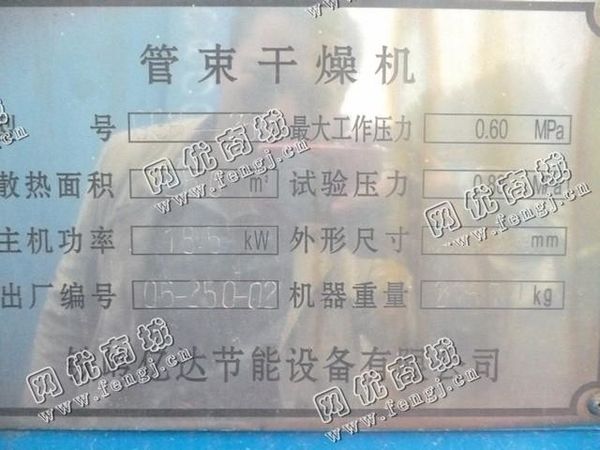 管束干燥机
型 号 最大工作压力 0.60 MPa
散热面积 m² 试验压力 MPa
主机功率 18.5 kW 外形尺寸 mm
出厂编号 05-250-02 机器重量 kg
亿达节能设备有限公司
网优商城
www.fengj.com
网优商城
www.fengj.com
网优商城
www.fengj.com
网优商城
www.fengj.com
网优商城
www.fengj.com